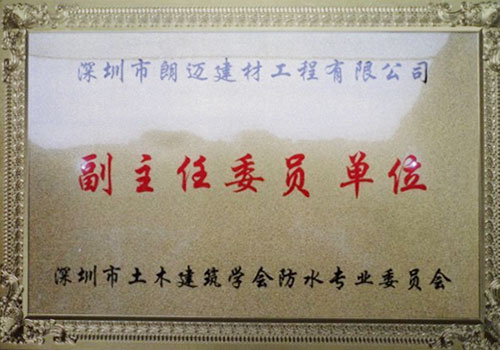 深圳市朗迈建材工程有限公司
副主任委员单位
深圳市土木建筑学会防水专业委员会